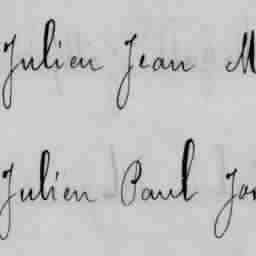 Julien Jean
Julien Paul